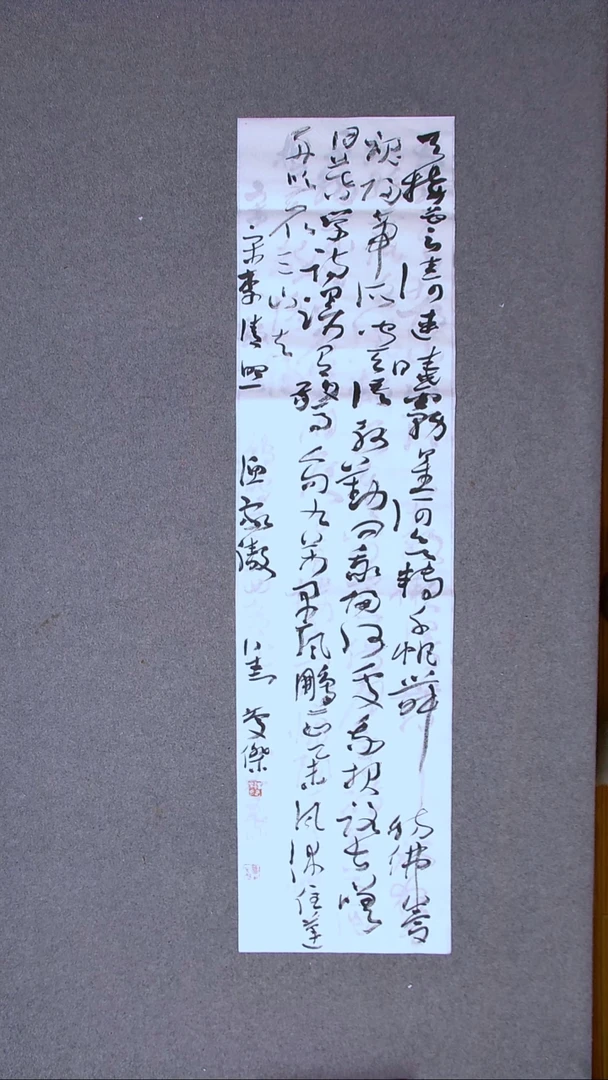 天接雲濤連曉霧星河欲轉千帆舞彷彿夢
魂歸帝所聞天語殷勤問我歸何處我報路長嗟
日暮學詩謾有驚人句九萬里風鵬正舉風休住蓬
舟吹取三山去
宋李清照 漁家傲 傑